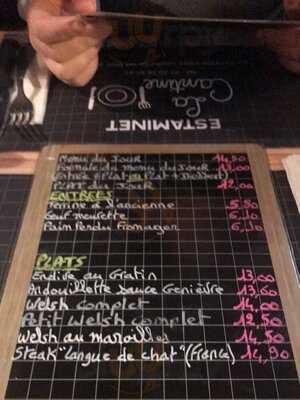 La
Cantine
ESTAMINET
Menu du Jour 14,90
Formule du menu du Jour 13,00
(Entrée & Plat ou Plat + Dessert)
PLAT du Jour 12,00
ENTRÉES
Terrine à l'ancienne 5,80
Oeuf meurette 6,10
Pain Perdu Fromager 6,10
PLATS
Endive au Gratin 13,00
Andouillette Sauce Genièvre 13,60
Welsh complet 14,00
Petit Welsh complet 12,50
Welsh au maroilles 14,50
Steak "Langue de chat" (France) 14,90